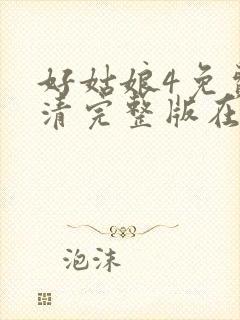 好姑娘4免
清完整版在
泡沫